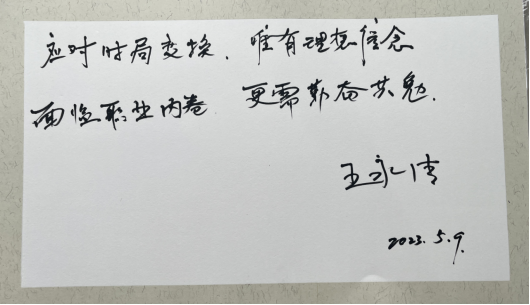 应对时局变换，唯有理想信念
面临职业内卷 更需勤奋共勉.
王永清
2023.5.9.